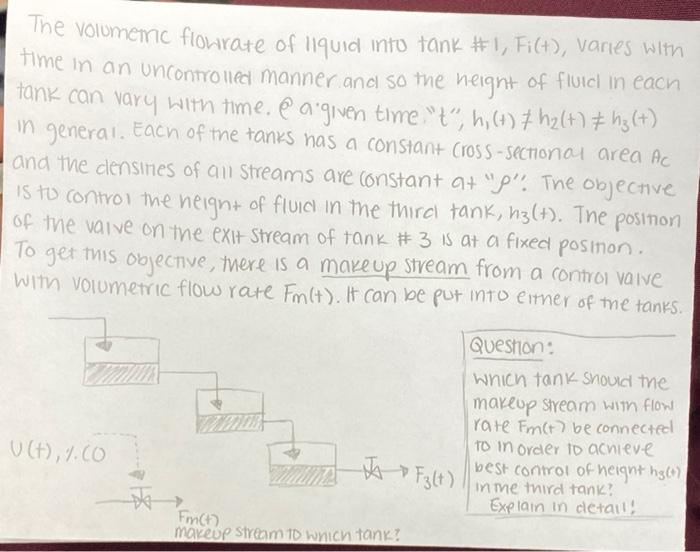 The volumetric flowrate of liquid into tank #1, Fi(t), varies with
time in an uncontrolled manner and so the height of fluid in each
tank can vary with time. @ a given time "t", h₁(t) ≠ h₂(t) ≠ h₃(t)
in general. Each of the tanks has a constant cross-sectional area Ac
and the densities of all streams are constant at "ρ". The objective
is to control the height of fluid in the third tank, h3(t). The position
of the valve on the exit stream of tank #3 is at a fixed position.
To get this objective, there is a makeup stream from a control valve
with volumetric flow rate Fm(t). It can be put into either of the tanks.
Question:
which tank should the
makeup stream with flow
rate Fm(t) be connected
to in order to achieve
best control of height h3(t)
in the third tank?
Explain in detail!
U(t), %CO
F3(t)
Fm(t)
makeup stream to which tank?